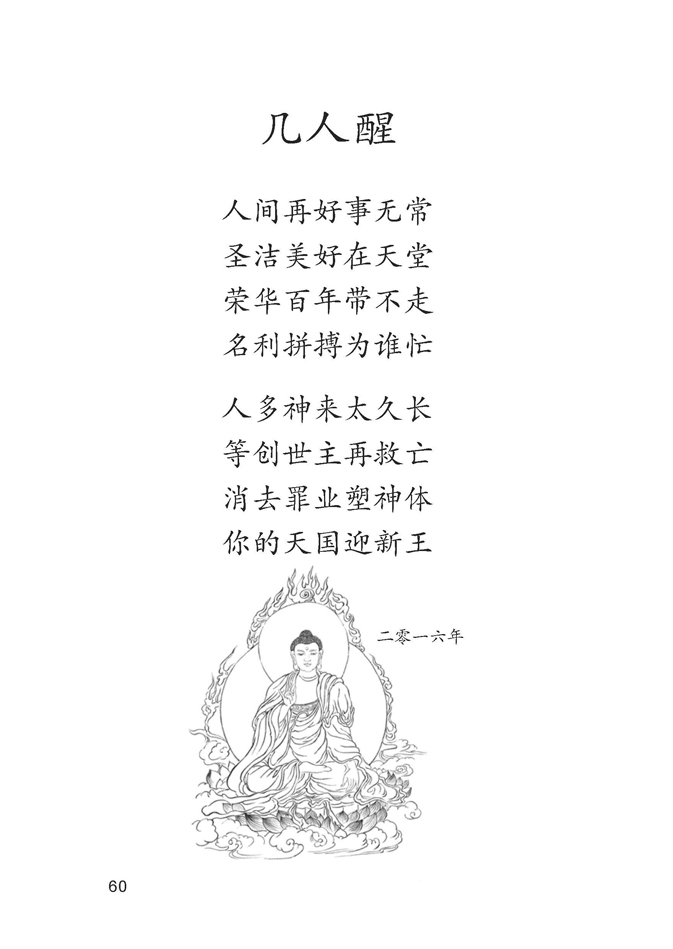 几人醒
人间再好事无常
圣洁美好在天堂
荣华百年带不走
名利拼搏为谁忙
人多神来太久长
等创世主再救亡
消去罪业塑神体
你的天国迎新王
二零一六年
60